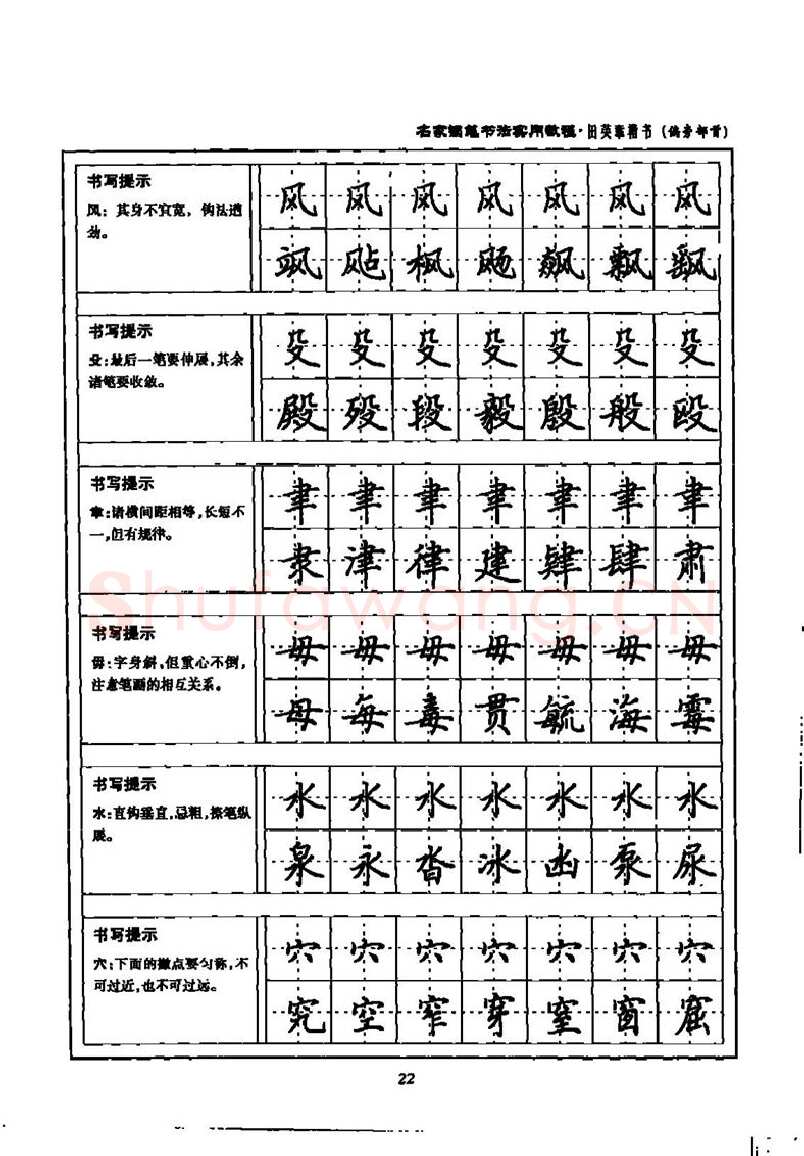 名家钢笔书法实用教程·田英章楷书(偏旁部首)
书写提示
风：其身不宜宽，钩法遒
劲。
风 风 风 风 风 风 风
飒 飐 枫 飏 飙 飘 飘
书写提示
殳：最后一笔要伸展，其余
诸笔要收敛。
殳 殳 殳 殳 殳 殳 殳
殿 殁 段 毅 殷 般 殴
书写提示
聿：诸横间距相等，长短不
一，但有规律。
聿 聿 聿 聿 聿 聿 聿
隶 津 律 建 肄 肆 肃
书写提示
毋：字身斜，但重心不倒，
注意笔画的相互关系。
毋 毋 毋 毋 毋 毋 毋
母 每 毒 贯 毓 海 霉
书写提示
水：直钩垂直，忌粗，捺笔纵
展。
水 水 水 水 水 水 水
泉 永 沓 冰 凼 泵 尿
书写提示
穴：下面的撇点要匀称，不
可过近，也不可过远。
穴 穴 穴 穴 穴 穴 穴
究 空 窄 穿 窒 窗 窟
22
Shufawang.CN